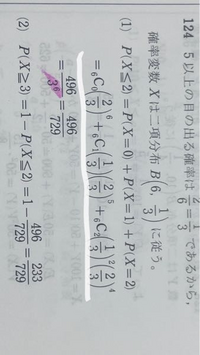 124 5以上の目の出る確率は 2/6 = 1/3 であるから,
確率変数 X は二項分布 B(6, 1/3) に従う。
(1) P(X≦2) = P(X=0) + P(X=1) + P(X=2)
= ₆C₀(2/3)⁶ + ₆C₁(1/3)(2/3)⁵ + ₆C₂(1/3)²(2/3)⁴
= 496/3⁶ = 496/729
(2) P(X≧3) = 1 − P(X≦2) = 1 − 496/729 = 233/729